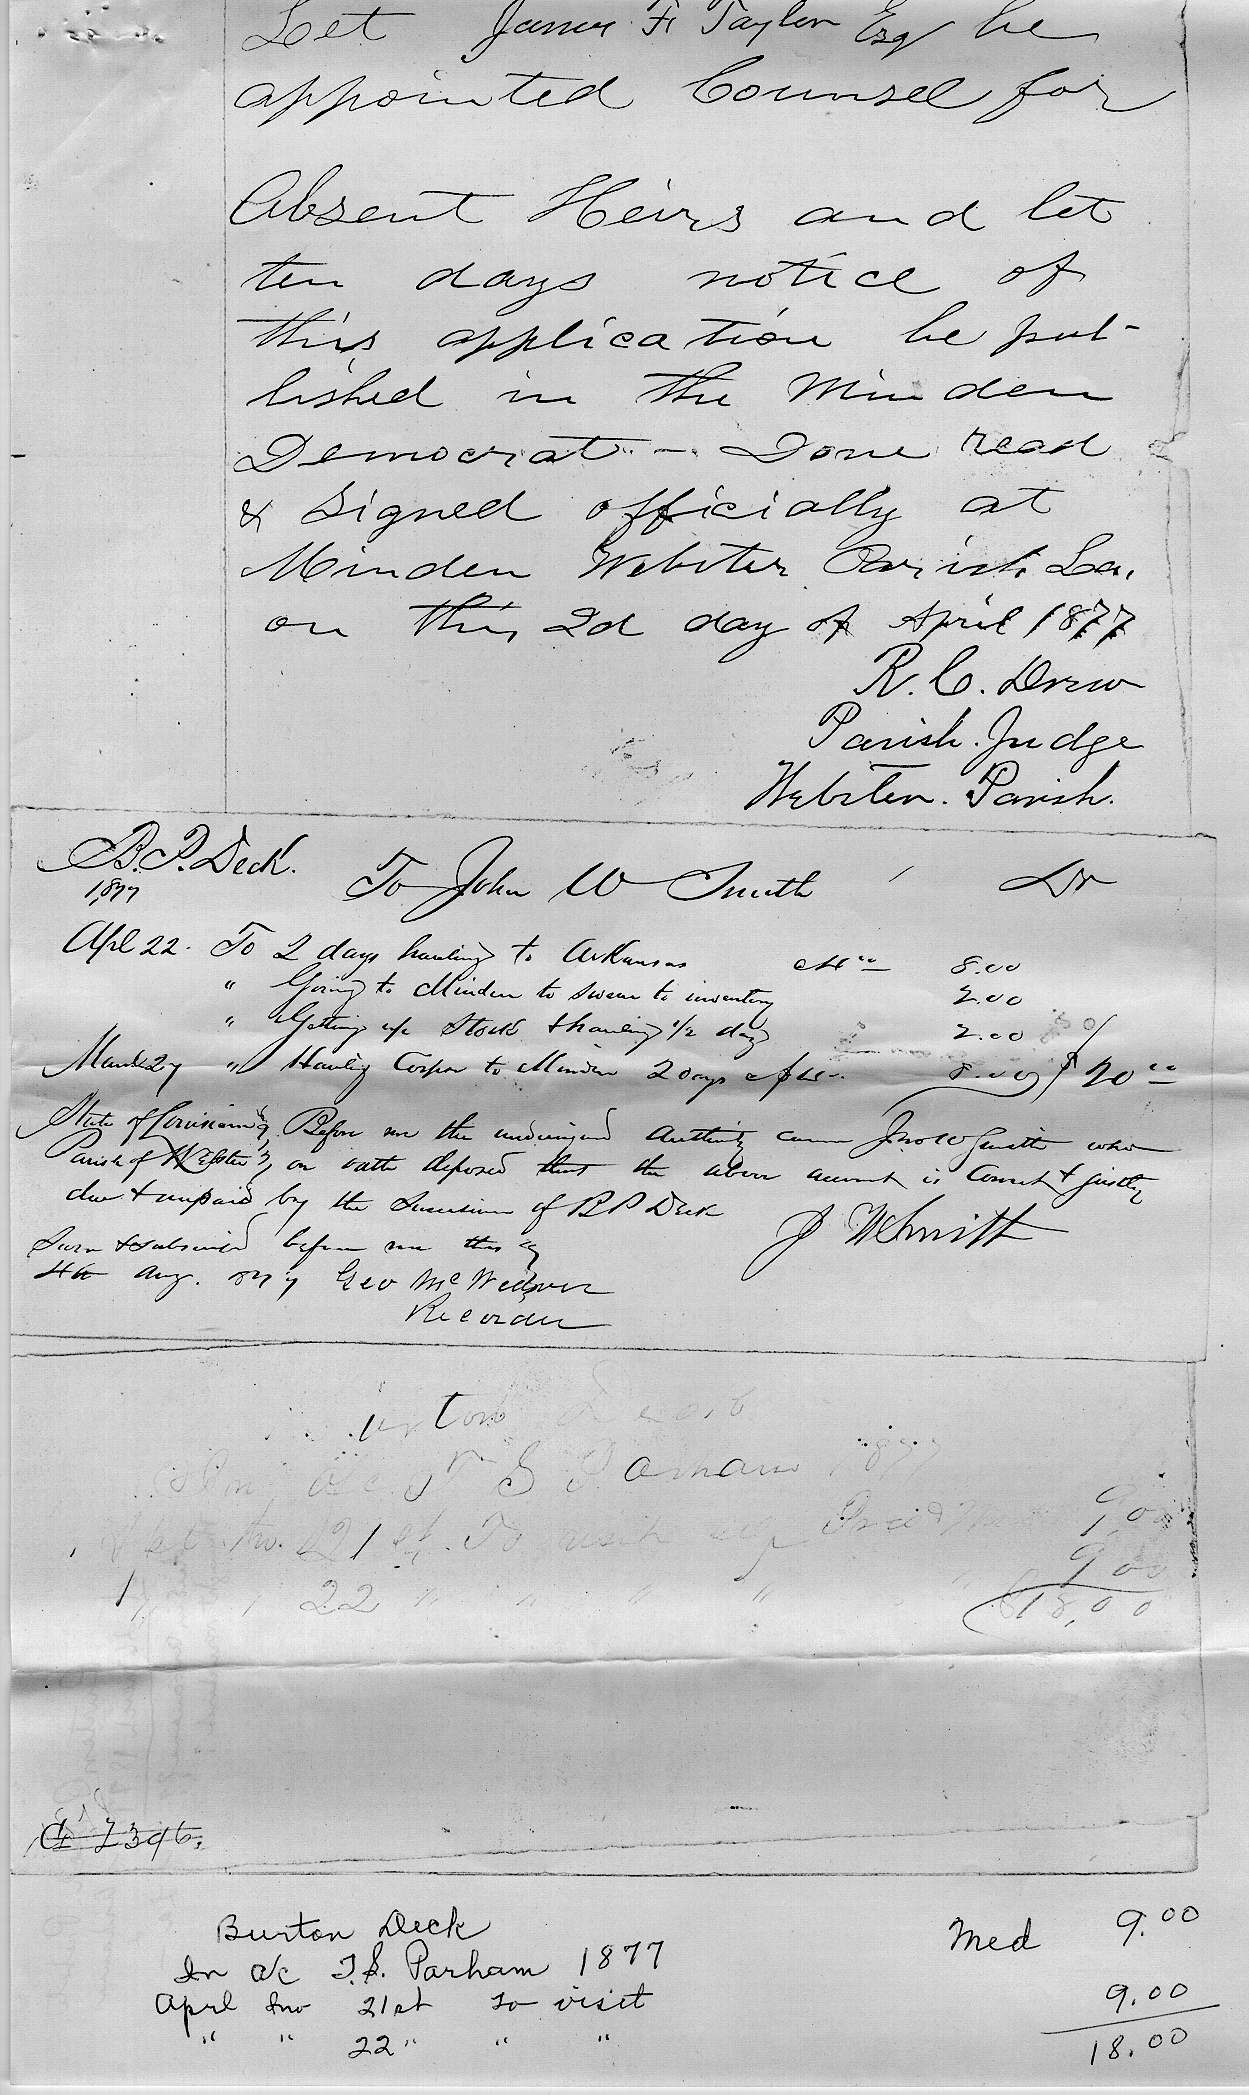 Let James F. Taylor Esq be
appointed Counsel for
Absent Heirs and let
ten days notice of
this application be pub-
lished in the Minden
Democrat - Done read
& signed officially at
Minden Webster Parish La.
on this 2d day of April 1877
R. C. Drew
Parish Judge
Webster Parish.
B. P. Deck. To John W Smith Dr
1877
Apl 22. To 2 days hauling to Arkansas 8.00
" Going to Minden to swear to inventory 2.00
" Getting up Stock & hauling 1/2 day 2.00
" Hauling Corpse to Minden 2 Days 8.00 $20 00
State of Louisiana Before me the undersigned authority came Jno W Smith who
Parish of Webster on oath deposed that the above account is Correct & justly
due & unpaid by the Succession of B P Deck
J W Smith
Sworn & subscribed before me this
4th Aug. 1877 Geo
Recorder
S Parham 1877
21st To visit 9.00
" 22 " " " " 9.00
18.00
7396.
Burton Deck Med 9.00
In a/c T. S. Parham 1877
Aprl Inv 21st to visit 9.00
" " 22 " " " 18.00